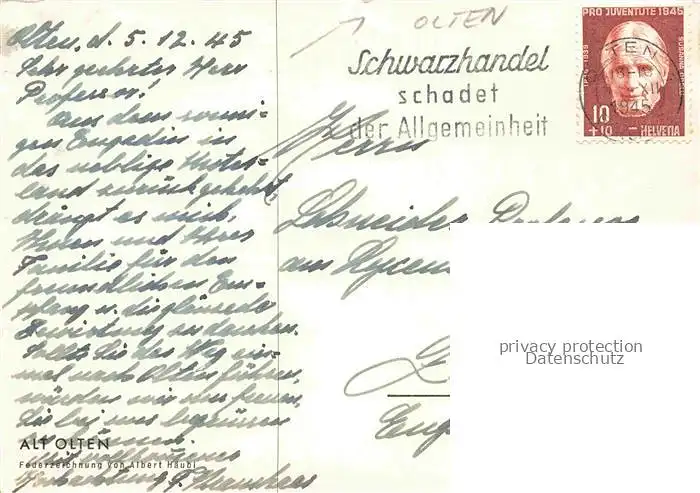 Olten, d. 5. 12. 45
Sehr geehrter Herr
Professor!
Aus dem sonni-
gen Engadin in
das neblige Unter-
land zurückgekehrt,
drängt es mich,
Ihnen und Ihrer
Familie für den
freundlichen Em-
pfang u. die glänzende
Bewirtung zu danken.
Sollte Sie der Weg ein-
mal nach Olten führen,
würden wir uns freuen,
Sie bei uns begrüssen
zu können.
Mit vollkommener
Hochachtung
ALT OLTEN
Federzeichnung von Albert Häubi
OLTEN
Schwarzhandel
schadet
der Allgemeinheit
PRO JUVENTUTE 1945
OLTEN
XII
1945
10
+10
HELVETIA
Herrn
Schneider Professor
am Lyceum
privacy protection
Datenschutz